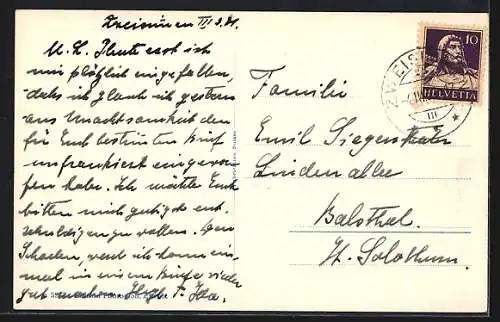 Zweisimmen III 3. 31.
M. L. Heute erst ist
mir plötzlich eingefallen,
daß ich glaub ich gestern
aus Unachtsamkeit den
für Euch bestimten Brief
unfrankiert eingewor-
fen habe. Ich möchte Euch
bitten mich gütigst ent-
schuldigen zu wollen. Den
Schaden, werd ich dann ein-
mal in einem Briefe wieder
gut machen. Ida.
Familie
Emil Siegenthaler
Lindenallee
Balsthal.
Kt. Solothurn.
10
HELVETIA
ZWEISI
III